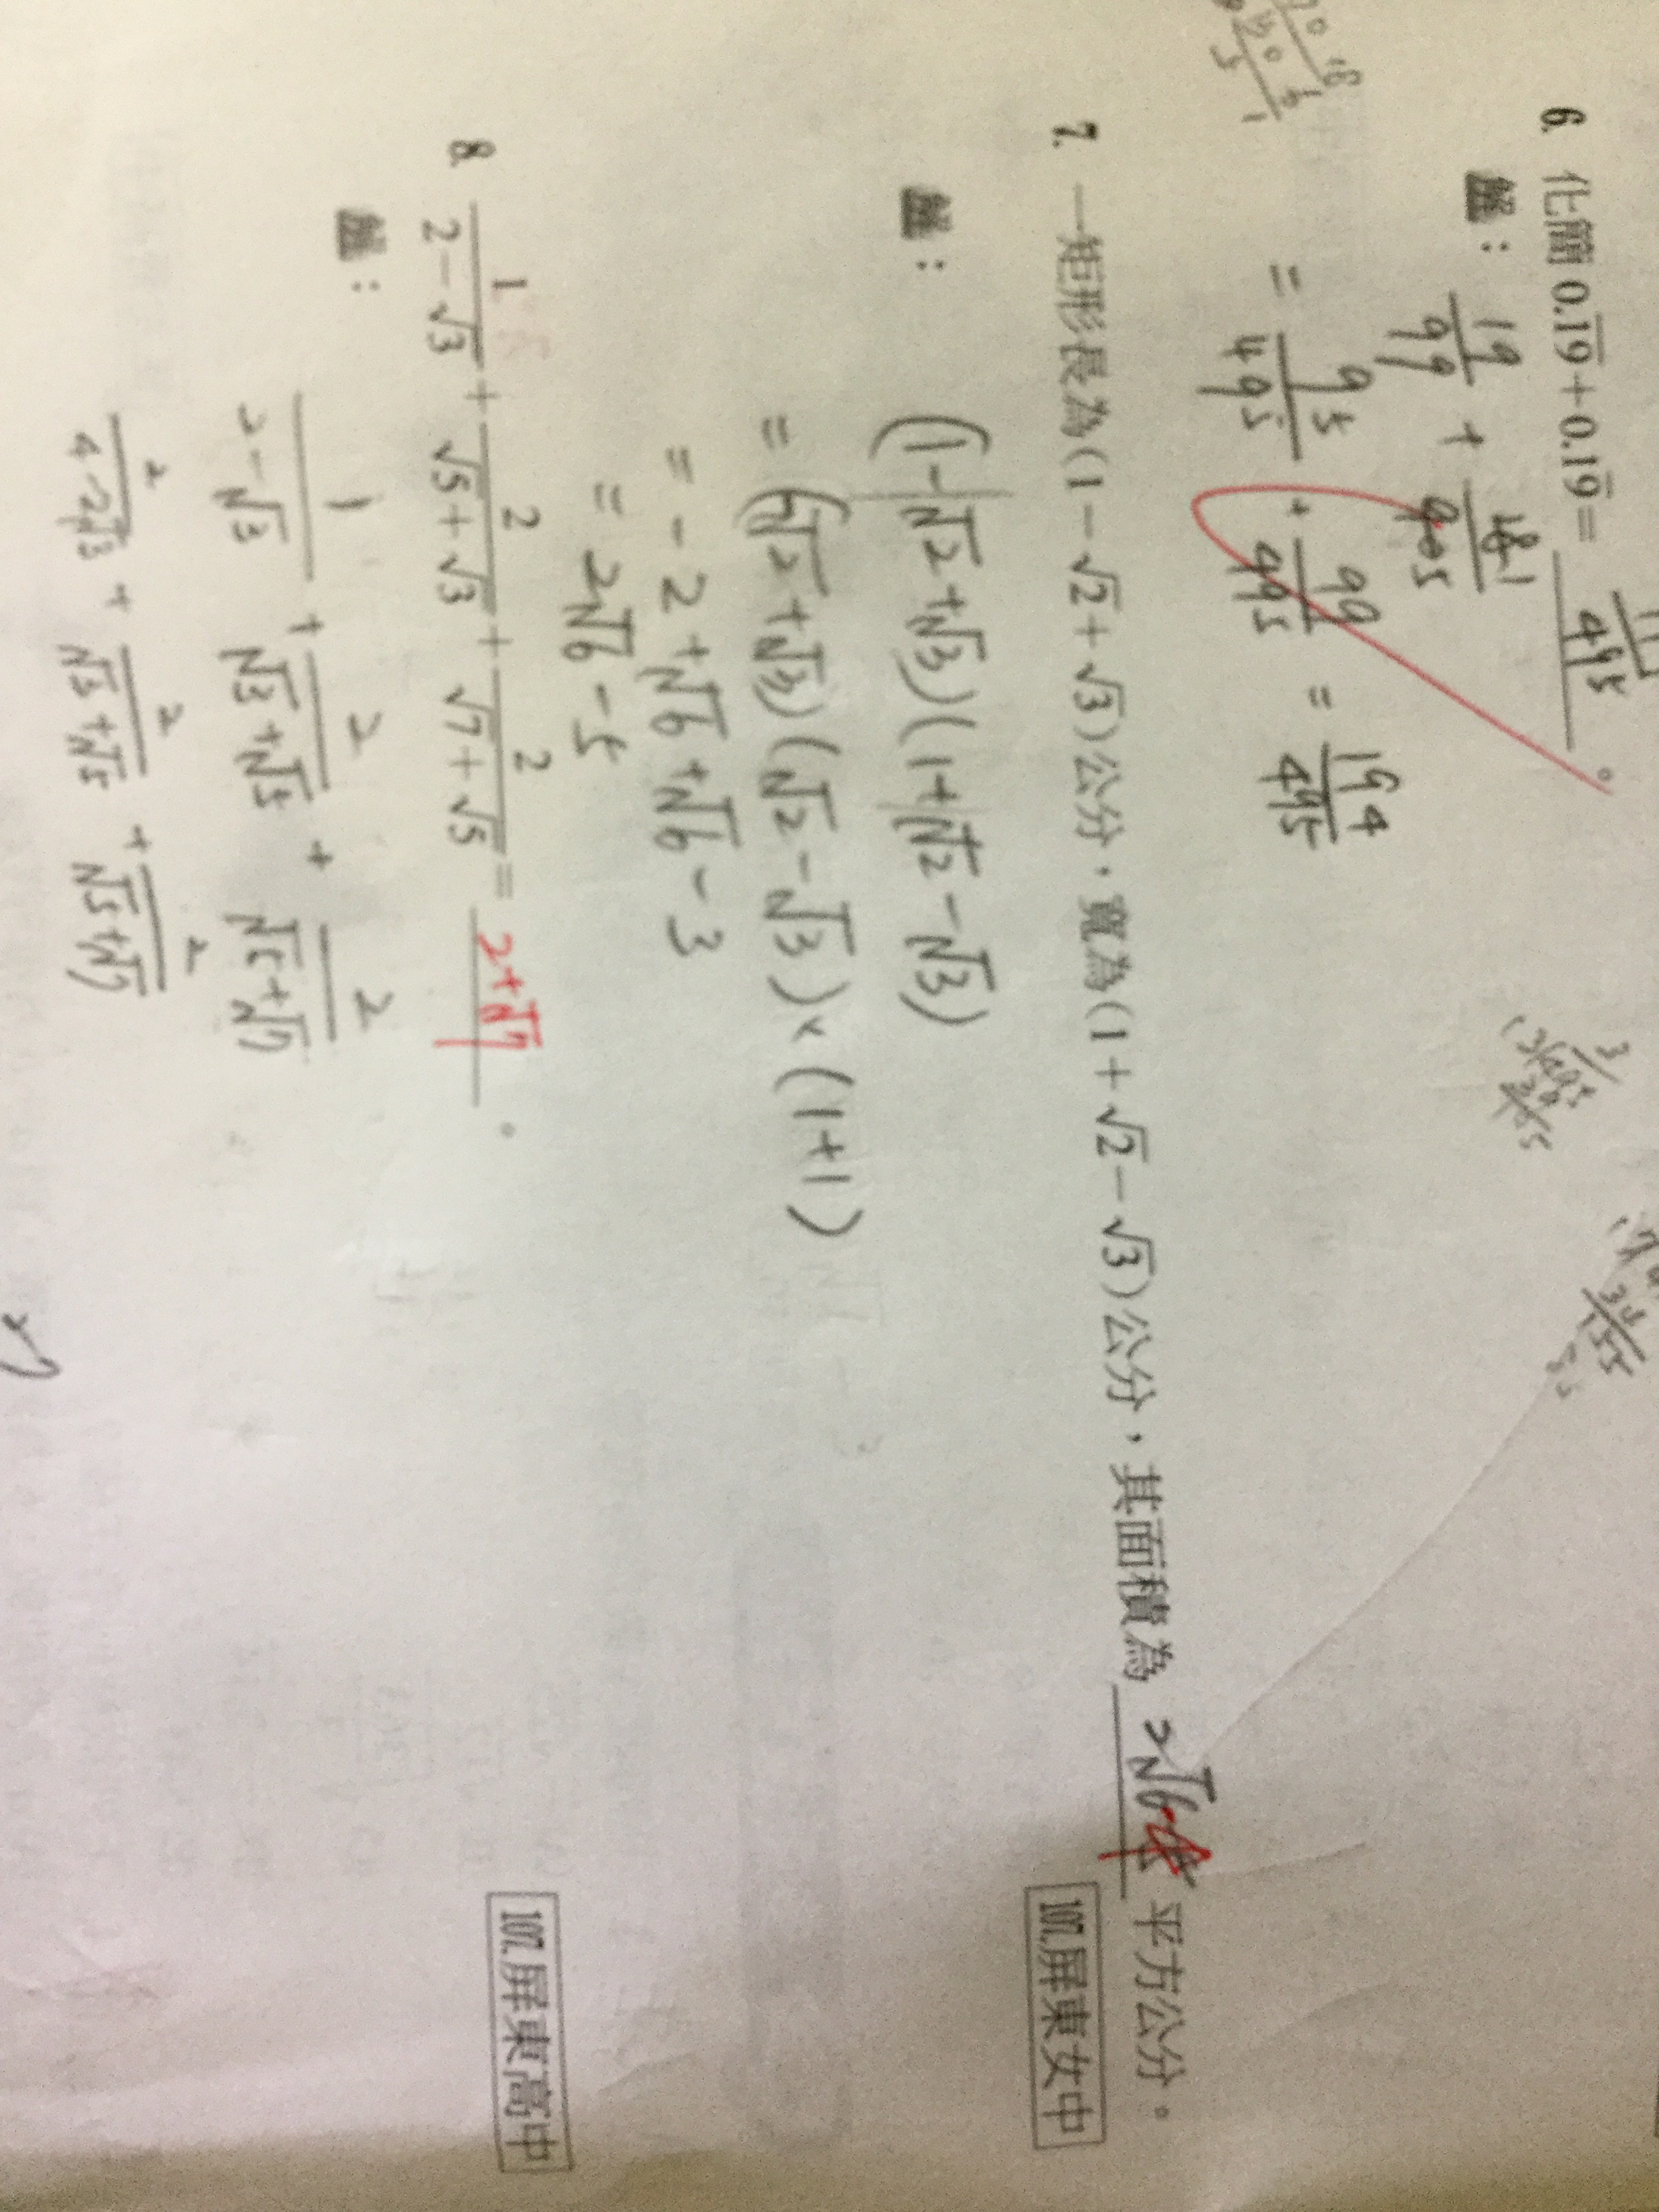 6. 化簡 0.1̅9̅ + 0.19̅ = 495 。
解：19/99 + 181/905
= 95/495 + 99/495 = 194/495
7. 一矩形長為(1 − √2 + √3)公分，寬為(1 + √2 − √3)公分，其面積為 2√6 平方公分。
107.屏東女中
解：
(1−√2+√3)(1+√2−√3)
= (√2+√3)(√2−√3)×(1+1)
= −2+√6+√6−3
= 2√6−5
8. 1/(2−√3) + 2/(√5+√3) + 2/(√7+√5) = 2+√7 。
107.屏東高中
解：
1/(2−√3) + 2/(√3+√5) + 2/(√5+√7)
2/(4−2√3) + 2/(√3+√5) + 2/(√5+√7)